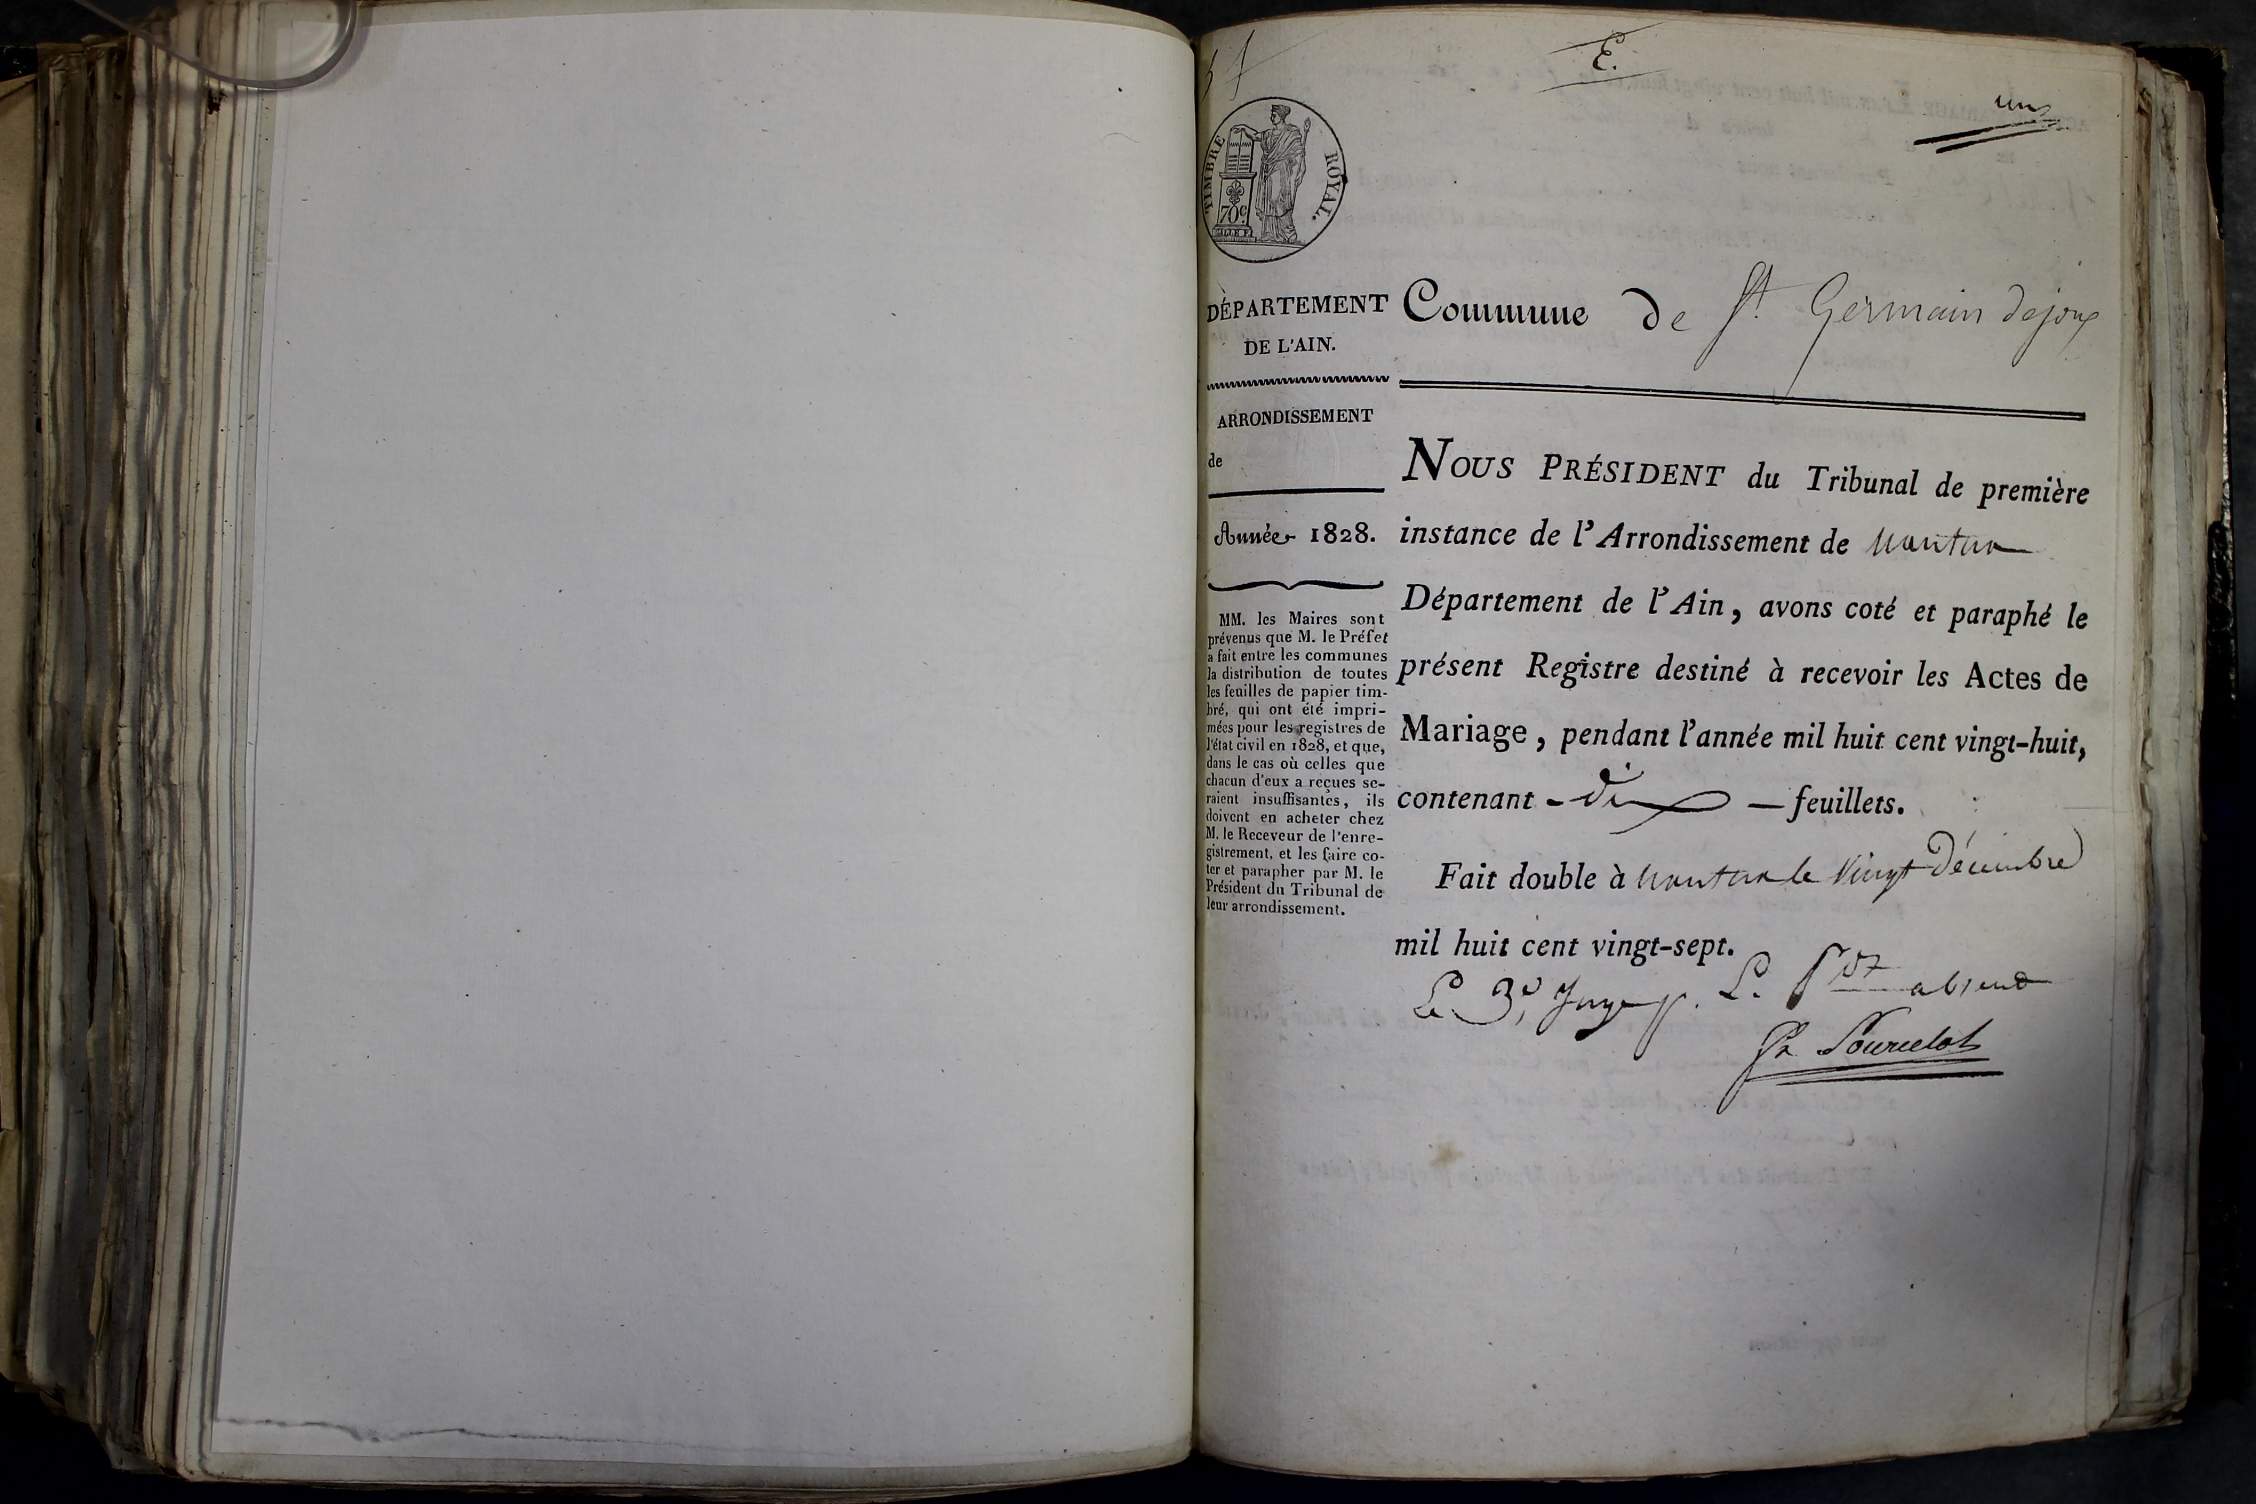 E.
un
TIMBRE ROYAL.
70 c
DÉPARTEMENT
DE L'AIN.
ARRONDISSEMENT
de
Année 1828.
MM. les Maires sont
prévenus que M. le Préfet
a fait entre les communes
la distribution de toutes
les feuilles de papier tim-
bré, qui ont été impri-
mées pour les registres de
l'état civil en 1828, et que,
dans le cas où celles que
chacun d'eux a reçues se-
raient insuffisantes, ils
doivent en acheter chez
M. le Receveur de l'enre-
gistrement, et les faire co-
ter et parapher par M. le
Président du Tribunal de
leur arrondissement.
Commune de St Germain dejoux
NOUS PRÉSIDENT du Tribunal de première
instance de l'Arrondissement de Nantua
Département de l'Ain, avons coté et paraphé le
présent Registre destiné à recevoir les Actes de
Mariage, pendant l'année mil huit cent vingt-huit,
contenant - dix — feuillets.
Fait double à Nantua le Vingt Décembre
mil huit cent vingt-sept.
Le 3e Juge p. Le Pdt absent